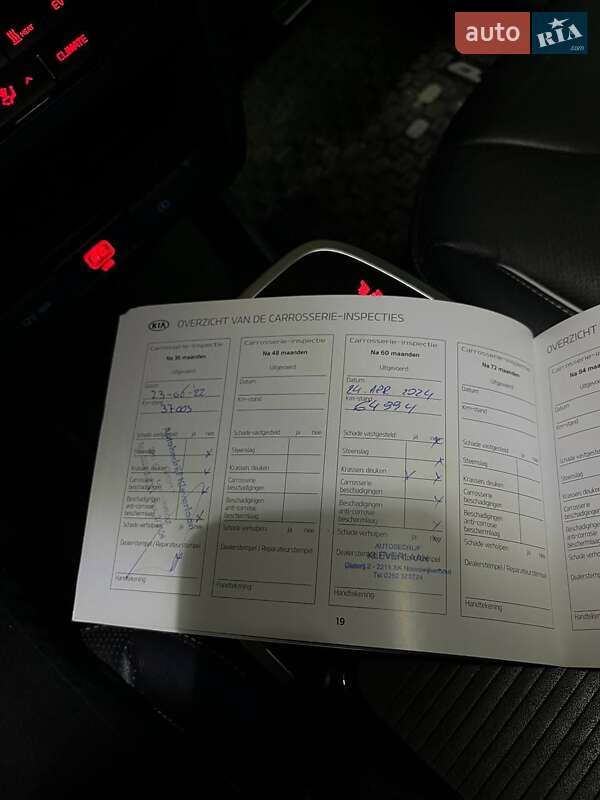 auto RIA .com
EV
HEAT
CLIMATE
KIA OVERZICHT VAN DE CARROSSERIE-INSPECTIES
Carrosserie-inspectie
Na 36 maanden
Uitgevoerd:
Datum
23-06-22
Km-stand
37003
Schade vastgesteld: ja nee
Steenslag
Krassen, deuken
Carrosserie
beschadigingen
Beschadigingen
anti-corrosie
beschermlaag
Schade verholpen: ja nee
Dealerstempel / Reparateurstempel
Handtekening
Carrosserie-inspectie
Na 48 maanden
Uitgevoerd:
Datum:
Km-stand:
Schade vastgesteld: ja nee
Steenslag
Krassen, deuken
Carrosserie
beschadigingen
Beschadigingen
anti-corrosie
beschermlaag
Schade verholpen: ja nee
Dealerstempel / Reparateurstempel
Handtekening:
Carrosserie-inspectie
Na 60 maanden
Uitgevoerd:
Datum
24 APR 2024
Km-stand
64994
Schade vastgesteld: ja
Steenslag
Krassen, deuken
Carrosserie
beschadigingen
Beschadigingen
anti-corrosie
beschermlaag
Schade verholpen: ja
AUTOBEDRIJF
KLEVERLAAN
Handtekening:
Carrosserie-inspectie
Na 72 maanden
Uitgevoerd:
Datum:
Km-stand:
Schade vastgesteld: ja nee
Steenslag
Krassen, deuken
Carrosserie
beschadigingen
Beschadigingen
anti-corrosie
beschermlaag
Schade verholpen: ja nee
Dealerstempel / Reparateurstempel
Handtekening
OVERZICHT
Carrosserie-
Na 84 maand
Uitgevoer
Datum:
Km-stand:
Schade vastgesteld
Steenslag
Krassen, deuken
Carrosserie
beschadigingen
Beschadigingen
anti-corrosie
beschermlaag
Schade verholpen
Handtekening
19